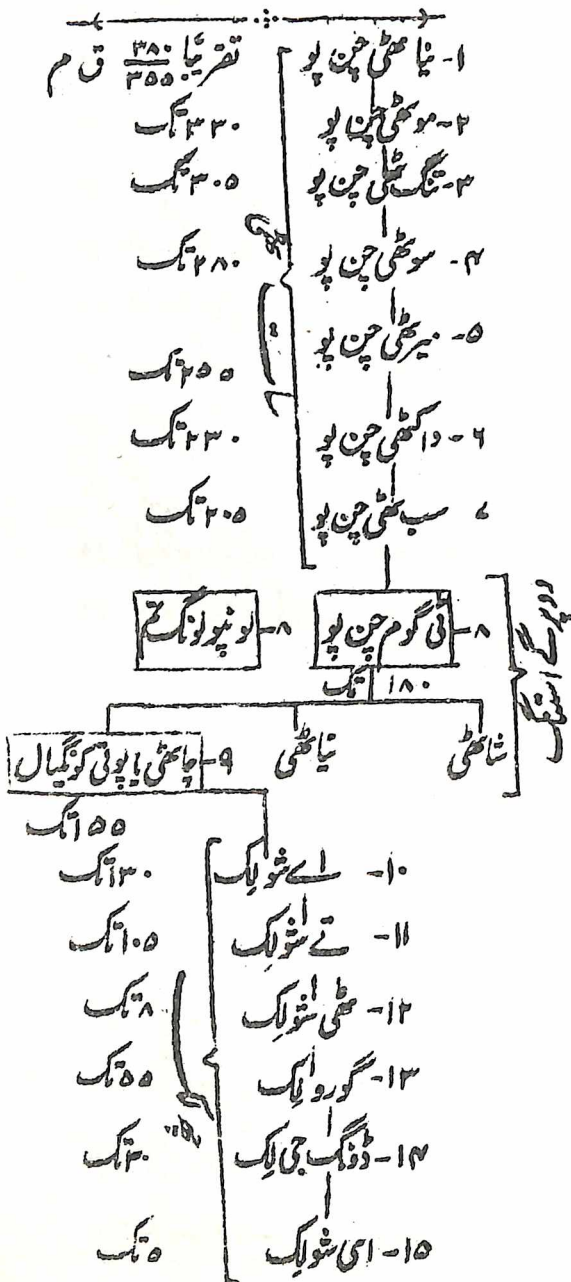 ۱- نیاٹھی چن پو تقریباً ۳۸۰/۳۵۵ ق م
۲- موٹھی چن پو ۳۳۰ تک
۳- تنگ ٹھی چن پو ۳۰۵ تک
۴- سوٹھی چن پو ۲۸۰ تک
۵- میرٹھی چن پو ۲۵۵ تک
۶- داکٹھی چن پو ۲۳۰ تک
۷ سب ٹھی چن پو ۲۰۵ تک
۸- ٹی گوم چن پو ۸- لونپو لونگ تم
۱۸۰ تک
شاٹھی نیاٹھی ۹- چاٹھی یا پوتی کونگیال
۱۵۵ تک
۱۰- اے شولِک ۱۳۰ تک
۱۱- تے شولِک ۱۰۵ تک
۱۲- ٹھی شولِک ۸۰ تک
۱۳- گورولِک ۵۵ تک
۱۴- ڈونگ جی لِک ۳۰ تک
۱۵- امی شولِک ۵ تک